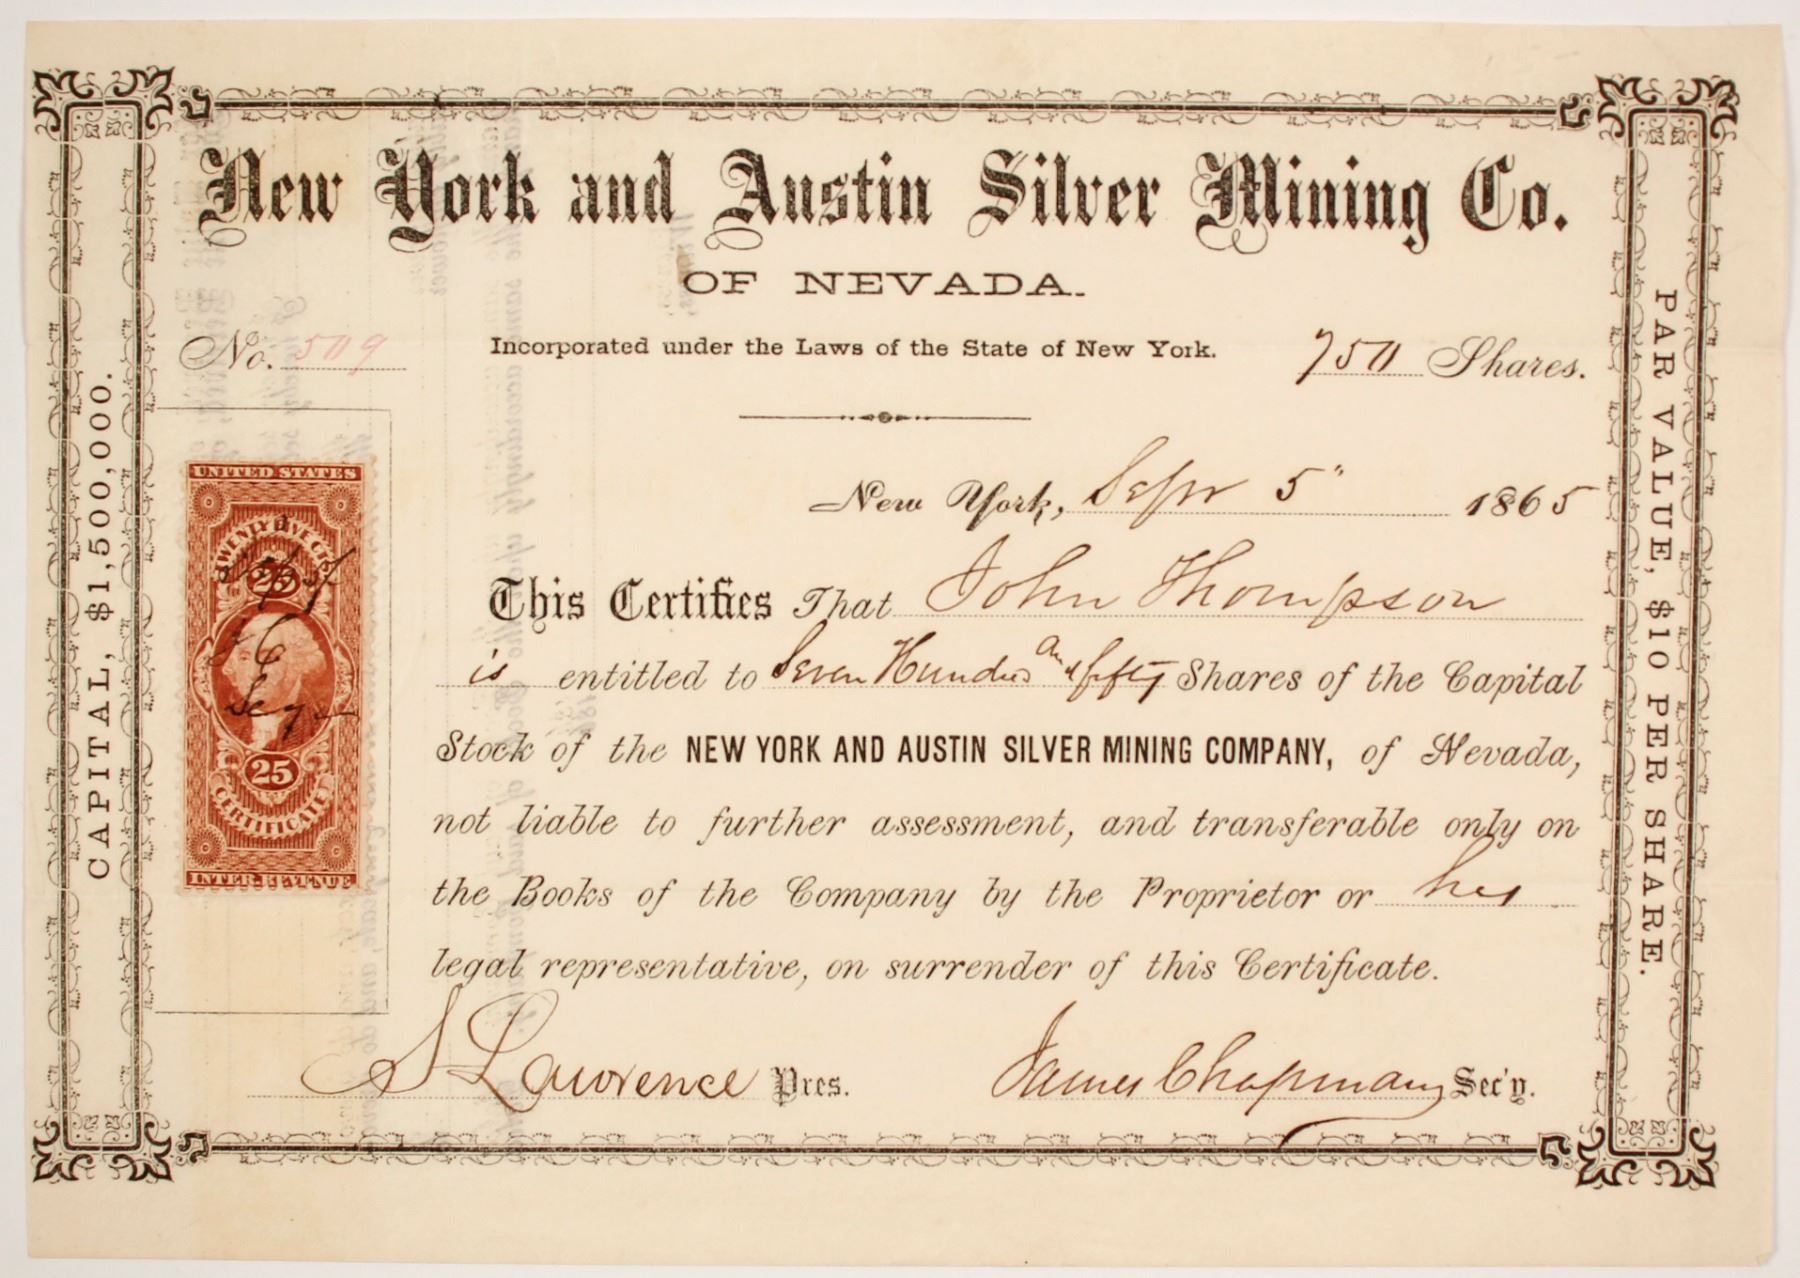 New York and Austin Silver Mining Co.
OF NEVADA.
No. 509
Incorporated under the Laws of the State of New York.
750 Shares.
New York, Sepr 5" 1865
This Certifies That John Thompson
is entitled to Seven Hundred and fifty Shares of the Capital
Stock of the NEW YORK AND AUSTIN SILVER MINING COMPANY, of Nevada,
not liable to further assessment, and transferable only on
the Books of the Company by the Proprietor or his
legal representative, on surrender of this Certificate.
S Lawrence Pres.
James Chapman Sec'y.
CAPITAL, $1,500,000.
PAR VALUE, $10 PER SHARE.
UNITED STATES
TWENTY FIVE CTS.
25
J C
Secy
25
CERTIFICATE
INTER. REVENUE